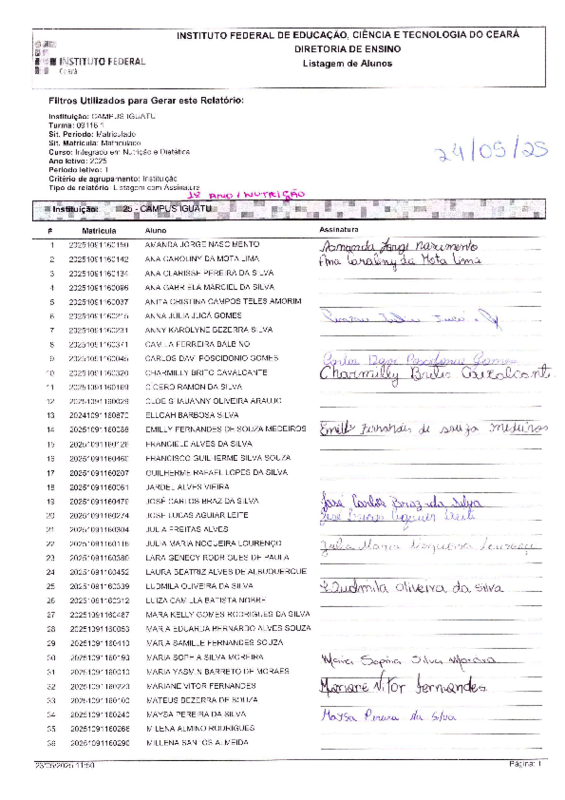 INSTITUTO FEDERAL DE EDUCAÇÃO, CIÊNCIA E TECNOLOGIA DO CEARÁ
DIRETORIA DE ENSINO
Listagem de Alunos
INSTITUTO FEDERAL
Ceará
Filtros Utilizados para Gerar este Relatório:
Instituição: CAMPUS IGUATU
Turma: 09116.1
Sit. Período: Matriculado
Sit. Matrícula: Matriculado
Curso: Integrado em Nutrição e Dietética
Ano letivo: 2025
Período letivo: 1
Critério de agrupamento: Instituição
Tipo de relatório: Listagem com Assinatura
24/05/25
1º ANO / NUTRIÇÃO
Instituição: 25 - CAMPUS IGUATU
# Matrícula Aluno Assinatura
1 AMANDA JORGE NASCIMENTO Amanda Jorge Nascimento
2 20251091160142 ANA CAROLINY DA MOTA LIMA Ana Caroliny da Mota Lima
3 20251091160134 ANA CLARISSE PEREIRA DA SILVA
4 ANA GABRIELA MARCIEL DA SILVA
5 20251091160037 ANITA CRISTINA CAMPOS TELES AMORIM
6 20251091160215 ANNA JÚLIA JUCÁ GOMES
7 20251091160231 ANNY KAROLYNE BEZERRA SILVA
8 20251091160371 CAMILA FERREIRA BALBINO
9 20251091160045 CARLOS DAVI POSCIDONIO GOMES Carlos Davi Poscidonio Gomes
10 20251091160320 CHARMILLY BRITO CAVALCANTE Charmilly Brito Cavalcante
11 20251091160169 CICERO RAMON DA SILVA
12 20251091160029 STHAUANNY OLIVEIRA ARAUJO
13 BARBOSA SILVA
14 EMILLY FERNANDES DE SOUZA MEDEIROS Emilly Fernandes de Souza Medeiros
15 20251091160126 FRANCIELE ALVES DA SILVA
16 20251091160460 FRANCISCO GUILHERME SILVA SOUZA
17 20251091160207 GUILHERME RAFAEL LOPES DA SILVA
18 20251091160061 JARDEL ALVES VIEIRA
19 20251091160479 JOSÉ CARLOS BRAZ DA SILVA José Carlos Braz da Silva
20 20251091160274 JOSE LUCAS AGUIAR LEITE José Lucas Aguiar Leite
21 20251091160304 JULIA FREITAS ALVES
22 20251091160118 JULIA MARIA NOGUEIRA LOURENÇO Julia Maria Nogueira Lourenço
23 20251091160380 LARA GENECY RODRIGUES DE PAULA
24 20251091160452 LAURA BEATRIZ ALVES DE ALBUQUERQUE
25 20251091160339 LUDMILA OLIVEIRA DA SILVA Ludmila Oliveira da Silva
26 20251091160312 LUIZA CAMILLA BATISTA NOBRE
27 20251091160487 MARA KELLY GOMES RODRIGUES DA SILVA
28 20251091160053 MARIA EDUARDA BERNARDO ALVES SOUZA
29 20251091160410 MARIA SAMILLE FERNANDES SOUZA
30 20251091160193 MARIA SOPHIA SILVA MOREIRA Maria Sophia Silva Moreira
31 20251091160010 MARIA YASMIN BARRETO DE MORAES
32 20251091160223 MARIANE VITOR FERNANDES Mariane Vitor Fernandes
33 20251091160100 MATEUS BEZERRA DE SOUZA
34 20251091160240 MAYSA PEREIRA DA SILVA Maysa Pereira da Silva
35 20251091160266 MILENA ALMINO RODRIGUES
36 20251091160290 MILLENA SANTOS ALMEIDA
Página: 1